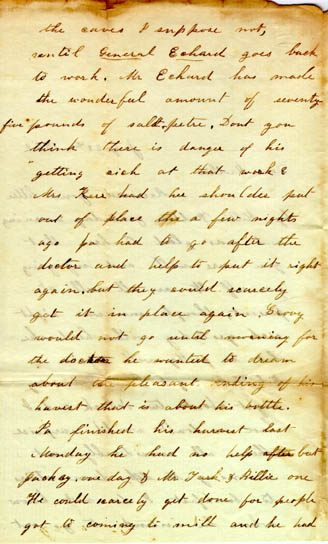 the caves I suppose not,
until General Echard goes back
to work. Mr Echard has made
the wonderful amount of seventy
five pounds of salt-petre. Dont you
think there is danger of his
"getting sick at that work &
Mrs had her shoulder put
out of place the a few nights
ago pa had to go after the
doctor and help to put it right
again, but they could scarcely
get it in place again.
would not go until morning for
the doctor he wanted to dream
about the pleasant ending of his
harvest that is about his bottle.
Pa finished his harvest last
Monday he had no help after but
one day & Mr & Billie one
He could scarcely get done for people
got to coming to mill and he had